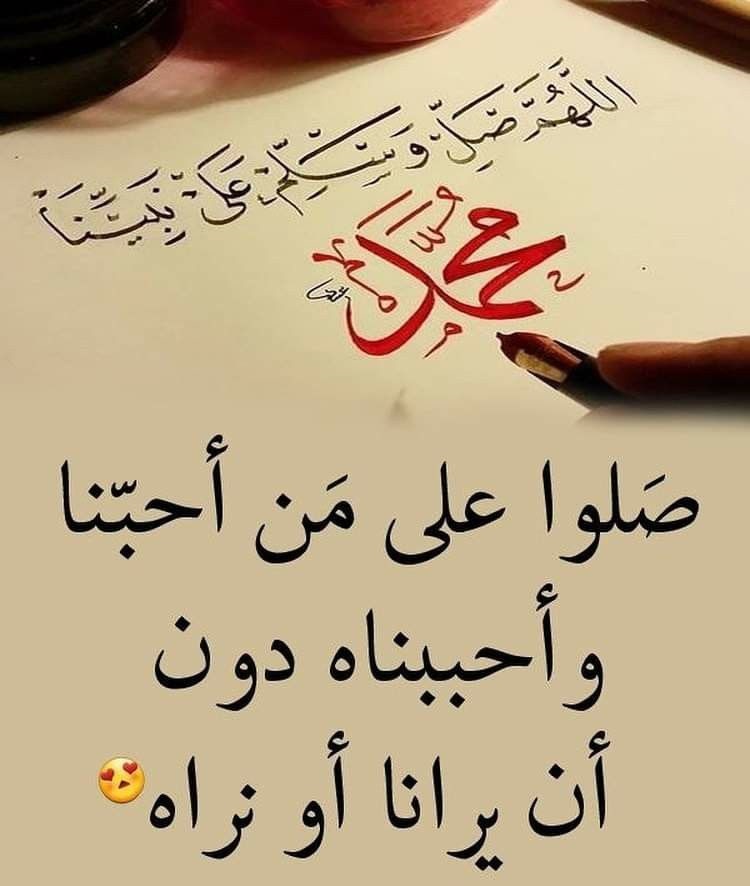 اللَّهُمَّ صَلِّ وَسَلِّمْ عَلَىٰ نَبِيِّنَا
محمد
صَلوا على مَن أحبّنا
وأحببناه دون
أن يرانا أو نراه😍